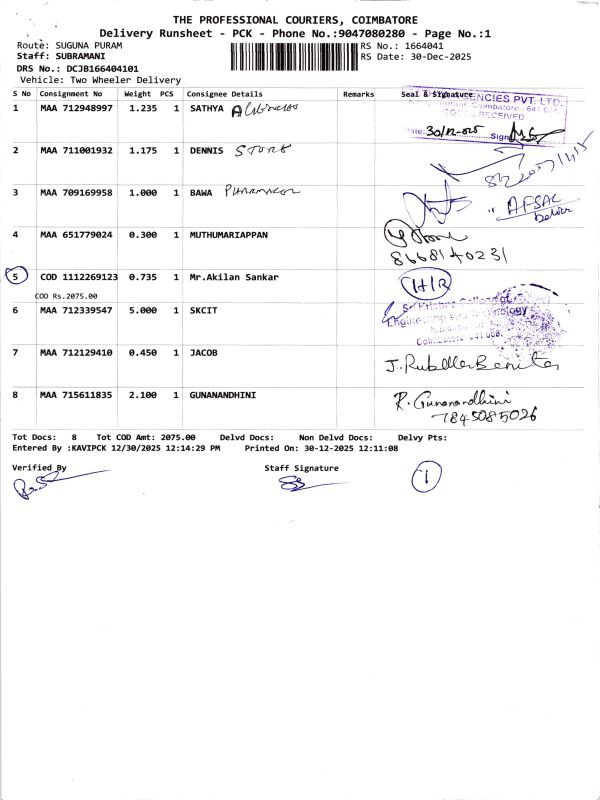 THE PROFESSIONAL COURIERS, COIMBATORE
Delivery Runsheet - PCK - Phone No.:9047080280 - Page No.:1
Route: SUGUNA PURAM RS No.: 1664041
Staff: SUBRAMANI RS Date: 30-Dec-2025
DRS No.: DCJB166404101
Vehicle: Two Wheeler Delivery
S No Consignment No Weight PCS Consignee Details Remarks Seal & Signature
AGENCIES PVT. LTD.
Coimbatore - 641 008.
GOODS RECEIVED
1 MAA 712948997 1.235 1 SATHYA
Date: 30/12-025 Sign
2 MAA 711001932 1.175 1 DENNIS STORE
3 MAA 709169958 1.000 1 BAWA
AFSAC
4 MAA 651779024 0.300 1 MUTHUMARIAPPAN
8668140231
5 COD 1112269123 0.735 1 Mr.Akilan Sankar H/R
COD Rs.2075.00
6 MAA 712339547 5.000 1 SKCIT
Sri Krishna College of
Engineering and Technology
Coimbatore - 641 008.
7 MAA 712129410 0.450 1 JACOB
8 MAA 715611835 2.100 1 GUNANANDHINI R. Gunanandhini
7845085026
Tot Docs: 8 Tot COD Amt: 2075.00 Delvd Docs: Non Delvd Docs: Delvy Pts:
Entered By :KAVIPCK 12/30/2025 12:14:29 PM Printed On: 30-12-2025 12:11:08
Verified By Staff Signature 1